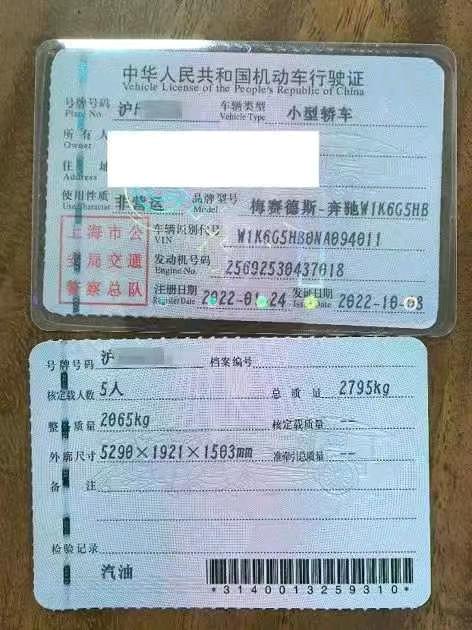 中华人民共和国机动车行驶证
Vehicle License of the People's Republic of China
号牌号码 沪F 车辆类型 小型轿车
Plate No. Vehicle Type
所有人
Owner
住 址
Address
使用性质 非营运 品牌型号 梅赛德斯-奔驰W1K6G5HB
Use Character Model
上海市公
安局交通
警察总队
车辆识别代号 W1K6G5HB0NA094011
VIN
发动机号码 25692530437018
Engine No.
注册日期 2022-01-24 发证日期 2022-10-08
Register Date Issue Date
号牌号码 沪 档案编号
核定载人数 5人 总 质 量 2795kg
整备质量 2065kg 核定载质量 --
外廓尺寸 5290×1921×1503mm 准牵引总质量 --
备 注
检验记录
汽油
*3140013259310*